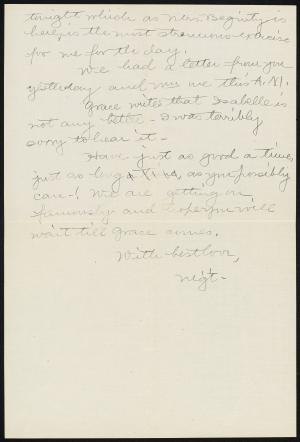 tonight which as Mrs. Beginty is
here, is the most strenuous exercise
for me for the day.
We had a letter from you
yesterday and one this A.M.
Grace writes that Isabelle is
not any better - I was terribly
sorry to hear it -
Have just as good a time,
just as long as you possibly
can -! We are getting on
famously and hope you will
wait till Grace comes.
With best love,
Mgt -